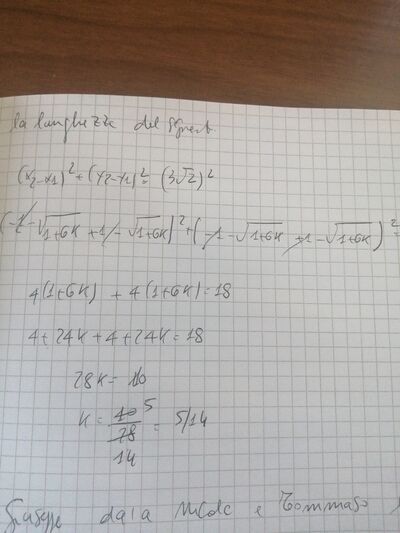 la lunghezza del segment
(x₂-x₁)²+(y₂-y₁)²=(3√2)²
(-1-√1+6K +1-√1+6K)²+(-1-√1+6K +1-√1+6K)²=
4(1+6K) + 4(1+6K)=18
4+24K+4+24K=18
28K= 10
K= 10 5 / 28 14 = 5/14
Giuseppe dà a Nicole e Tommaso